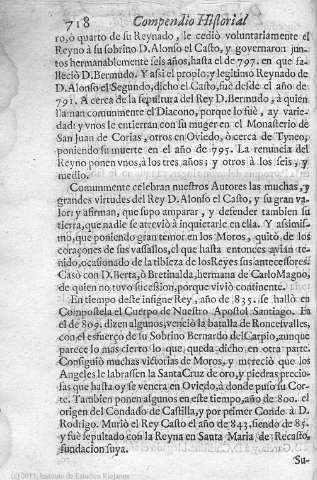 718 Compendio Historial
ro, ò quarto de su Reynado, le cediò voluntariamente el
Reyno à su sobrino D. Alonso el Casto, y governaron jun-
tos hermanablemente seis años, hasta el de 797. en que fa-
lleciò D. Bermudo. Y assi el propio, y legitimo Reynado de
D. Alonso el Segundo, dicho el Casto, fuè desde el año de
791. A cerca de la sepultura del Rey D. Bermudo, à quien
llaman comunmente el Diacono, porque lo fuè, ay varie-
dad: y vnos le entierran con su muger en el Monasterio de
San Juan de Corias, otros en Oviedo, ò cerca de Tyneo,
poniendo su muerte en el año de 795. La renuncia del
Reyno ponen vnos, à los tres años; y otros à los seis, y
medio.
Comunmente celebran nuestros Autores las muchas, y
grandes virtudes del Rey D. Alonso el Casto, y su gran va-
lor: y afirman, que supo amparar, y defender tambien su
tierra, que nadie se atreviò à inquietarle en ella. Y assimis-
mo, que poniendo gran temor en los Moros, quitò de los
coraçones de sus vassallos, el que hasta entonces avian te-
nido, ocasionado de la tibieza de los Reyes sus antecessores.
Casò con D. Berta, ò Bretinalda, hermana de Carlo Magno,
de quien no tuvo sucession, porque viviò continente.
En tiempo deste insigne Rey, año de 835. se hallò en
Compostela el Cuerpo de Nuestro Apostol Santiago. En
el de 809. dizen algunos, venciò la batalla de Roncesvalles,
con el esfuerço de su Sobrino Bernardo del Carpio, aunque
parece lo mas cierto lo que queda dicho en otra parte.
Consiguiò muchas victorias de Moros, y mereciò que los
Angeles le labrassen la Santa Cruz de oro, y piedras precio-
sas que hasta oy se venera en Oviedo, à donde puso su Cor-
te. Tambien ponen algunos en este tiempo, año de 800. el
origen del Condado de Castilla, y por primer Conde à D.
Rodrigo. Muriò el Rey Casto el año de 843. siendo de 85.
y fuè sepultado con la Reyna en Santa Maria de Recasto,
fundacion suya.
Su-
(c) 2011, Instituto de Estudios Riojanos